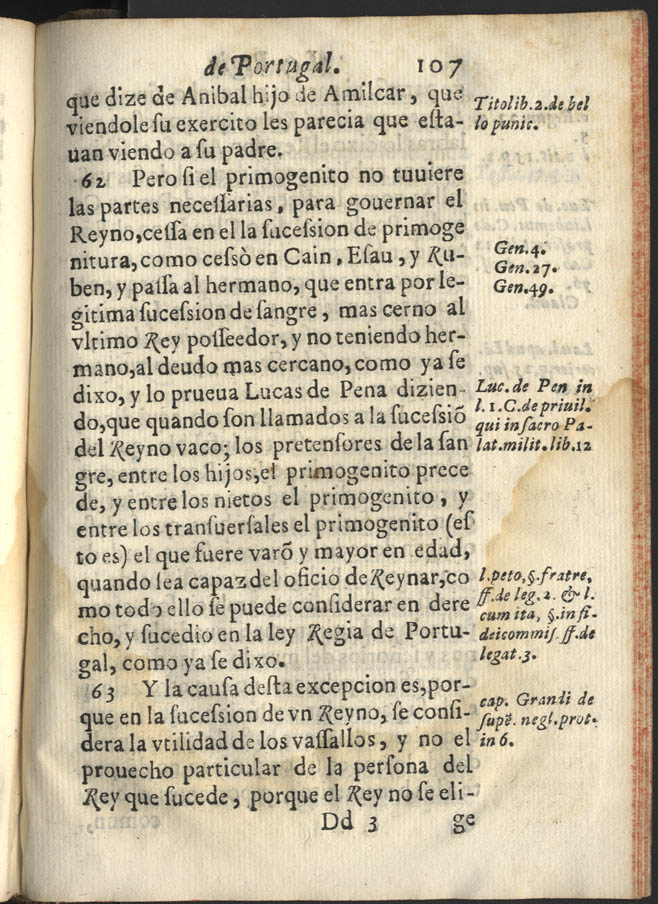 de Portugal. 107
que dize de Anibal hijo de Amilcar, que
viendole ſu exercito les parecia que eſta-
uan viendo a ſu padre.
62 Pero ſi el primogenito no tuuiere
las partes neceſſarias, para gouernar el
Reyno,ceſſa en el la ſuceſsion de primoge
nitura, como ceſsò en Cain, Eſau, y Ru-
ben, y paſſa al hermano, que entra por le-
gitima ſuceſsion de ſangre, mas cerno al
vltimo Rey poſſeedor, y no teniendo her-
mano,al deudo mas cercano, como ya ſe
dixo, y lo prueua Lucas de Pena dizien-
do,que quando ſon llamados a la ſuceſsiõ
del Reyno vaco; los pretenſores de la ſan
gre, entre los hijos,el primogenito prece
de, y entre los nietos el primogenito, y
entre los tranſuerſales el primogenito (eſ
to es) el que fuere varõ y mayor en edad,
quando ſea capaz del oficio de Reynar, co
mo todo ello ſe puede conſiderar en dere
cho, y ſucedio en la ley Regia de Portu-
gal, como ya ſe dixo.
63 Y la cauſa deſta excepcion es,por-
que en la ſuceſsion de vn Reyno, ſe conſi-
dera la vtilidad de los vaſſallos, y no el
prouecho particular de la perſona del
Rey que ſucede, porque el Rey no ſe eli-
Dd 3 ge
Tito lib. 2. de bel
lo punic.
Gen. 4.
Gen. 27.
Gen. 49.
Luc. de Pen in
l. 1. C. de priuil.
qui in ſacro Pa-
lat. milit. lib. 12
l. peto, §. fratre,
ff. de leg. 2. & l.
cum ita, §. in fi-
deicommiſ. ff. de
legat. 3.
cap. Grandi de
ſupẽ. negl. prot.
in 6.